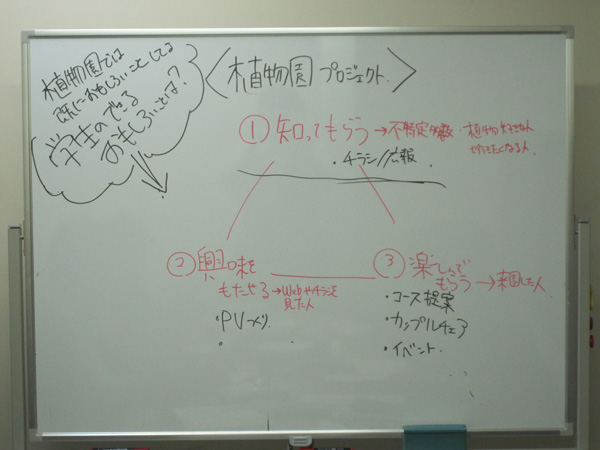 植物園では
既におもしろいことしてる
学生のできる
おもしろいことは?
〈植物園プロジェクト〉
① 知ってもらう → 不特定多数・植物好きな人
・チラシ/広報
② 興味を
もたせる → Webやチラシを
見た人
・PVづくり
③ 楽しんで
もらう → 来園した人
・コース提案
・カップルチェア
・イベント